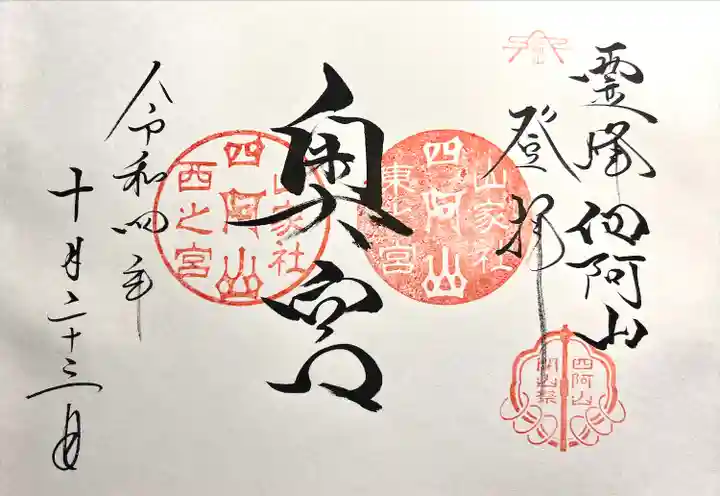 霊峰四阿山
登拝
四阿山
開山祭
山家社
四阿山
東之宮
奥宮
山家社
四阿山
西之宮
令和四年
十月二十三日